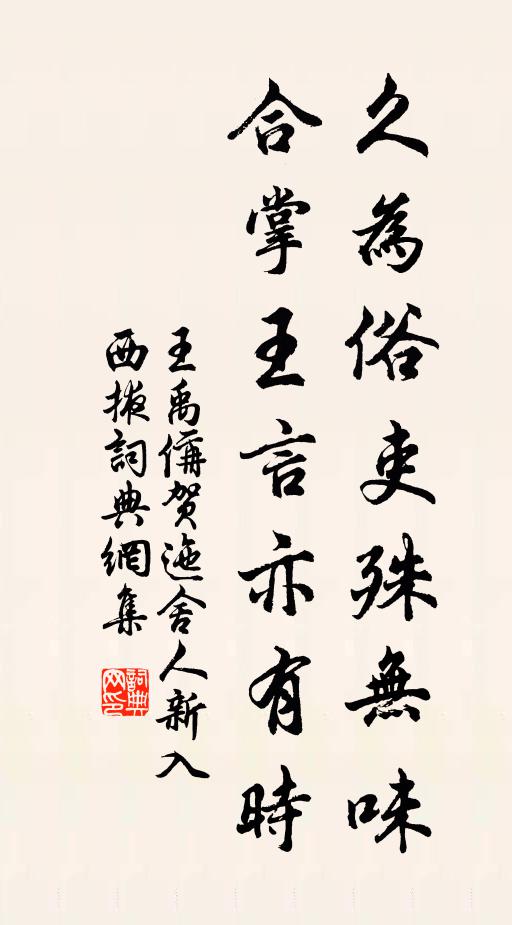 久為俗吏殊無味
合掌王言亦有時
王禹偁賀迤舍人新入
西掖詞典網集
詞典網印